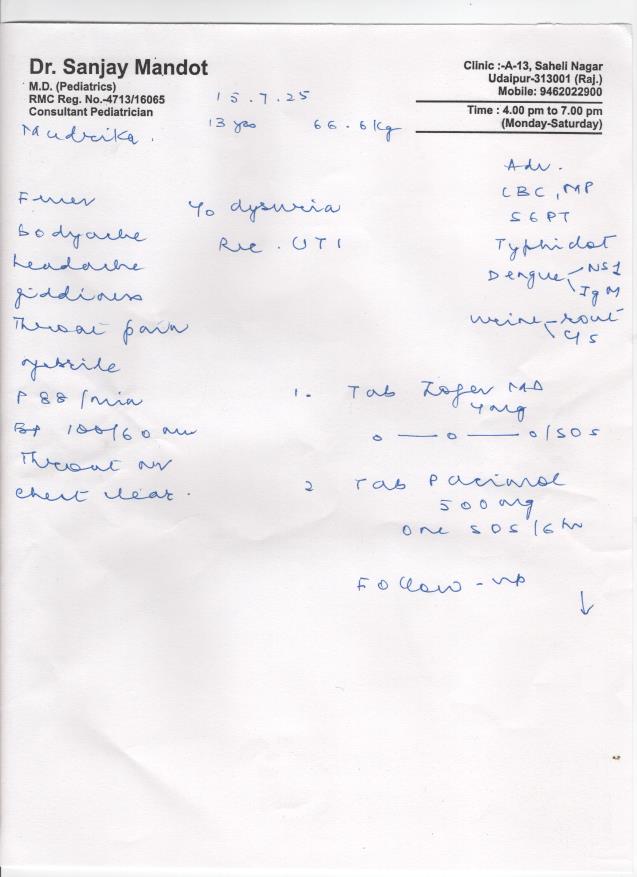 Dr. Sanjay Mandot
M.D. (Pediatrics)
RMC Reg. No.-4713/16065
Consultant Pediatrician
Clinic :-A-13, Saheli Nagar
Udaipur-313001 (Raj.)
Mobile: 9462022900
Time : 4.00 pm to 7.00 pm
(Monday-Saturday)
15.7.25
Mudrika. 13 yrs 66.6 kg
Fever
bodyache
headache
giddiness
Throat pain
P 88/min
BP 100/60
Throat
Chest clear.
dysuria
Rec. UTI
Adv.
CBC, MP
SGPT
Typhidot
Dengue NS1
IgM
Urine - rout
C/S
1. Tab Zofer MD
4mg
o — o — o/SOS
2 Tab Pacimol
500mg
one SOS/6hr
Follow-up
↓